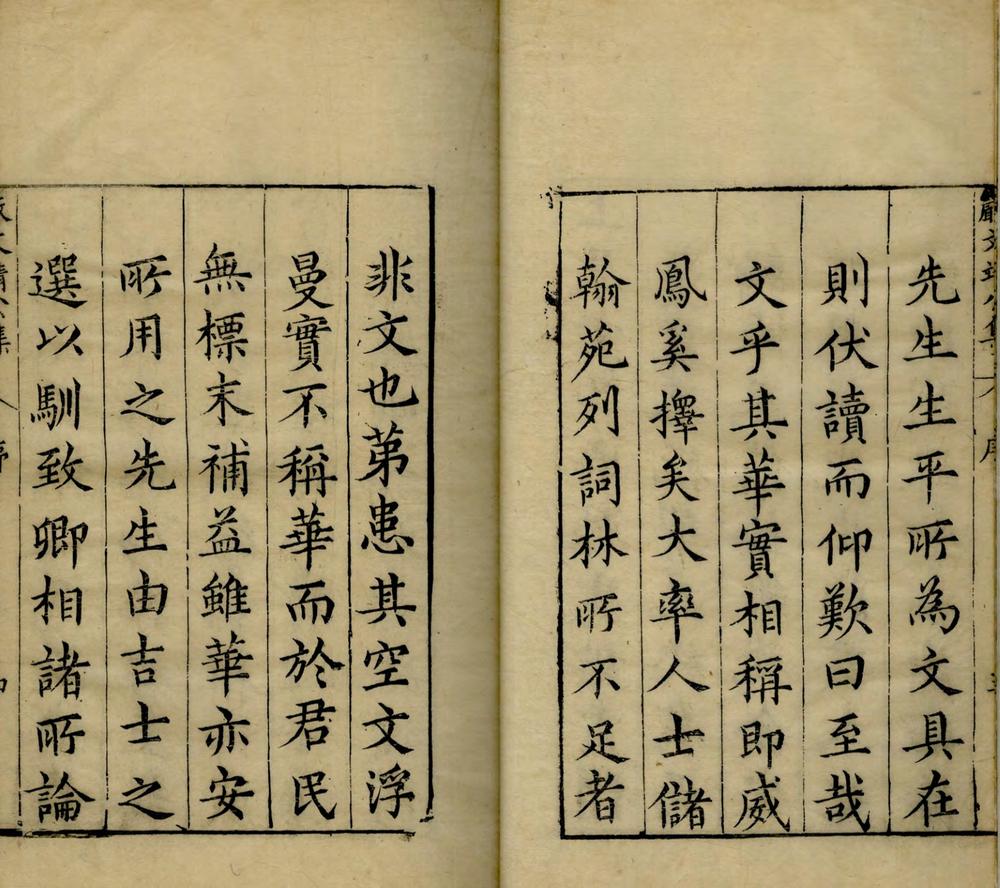 先生生平所為文具在
則伏讀而仰歎曰至哉
文乎其華實相稱即威
鳳奚擇矣大率人士儲
翰苑列詞林所不足者
非文也苐患其空文浮
曼實不稱華而於君民
無標末補益雖華亦安
所用之先生由吉士之
選以馴致卿相諸所論